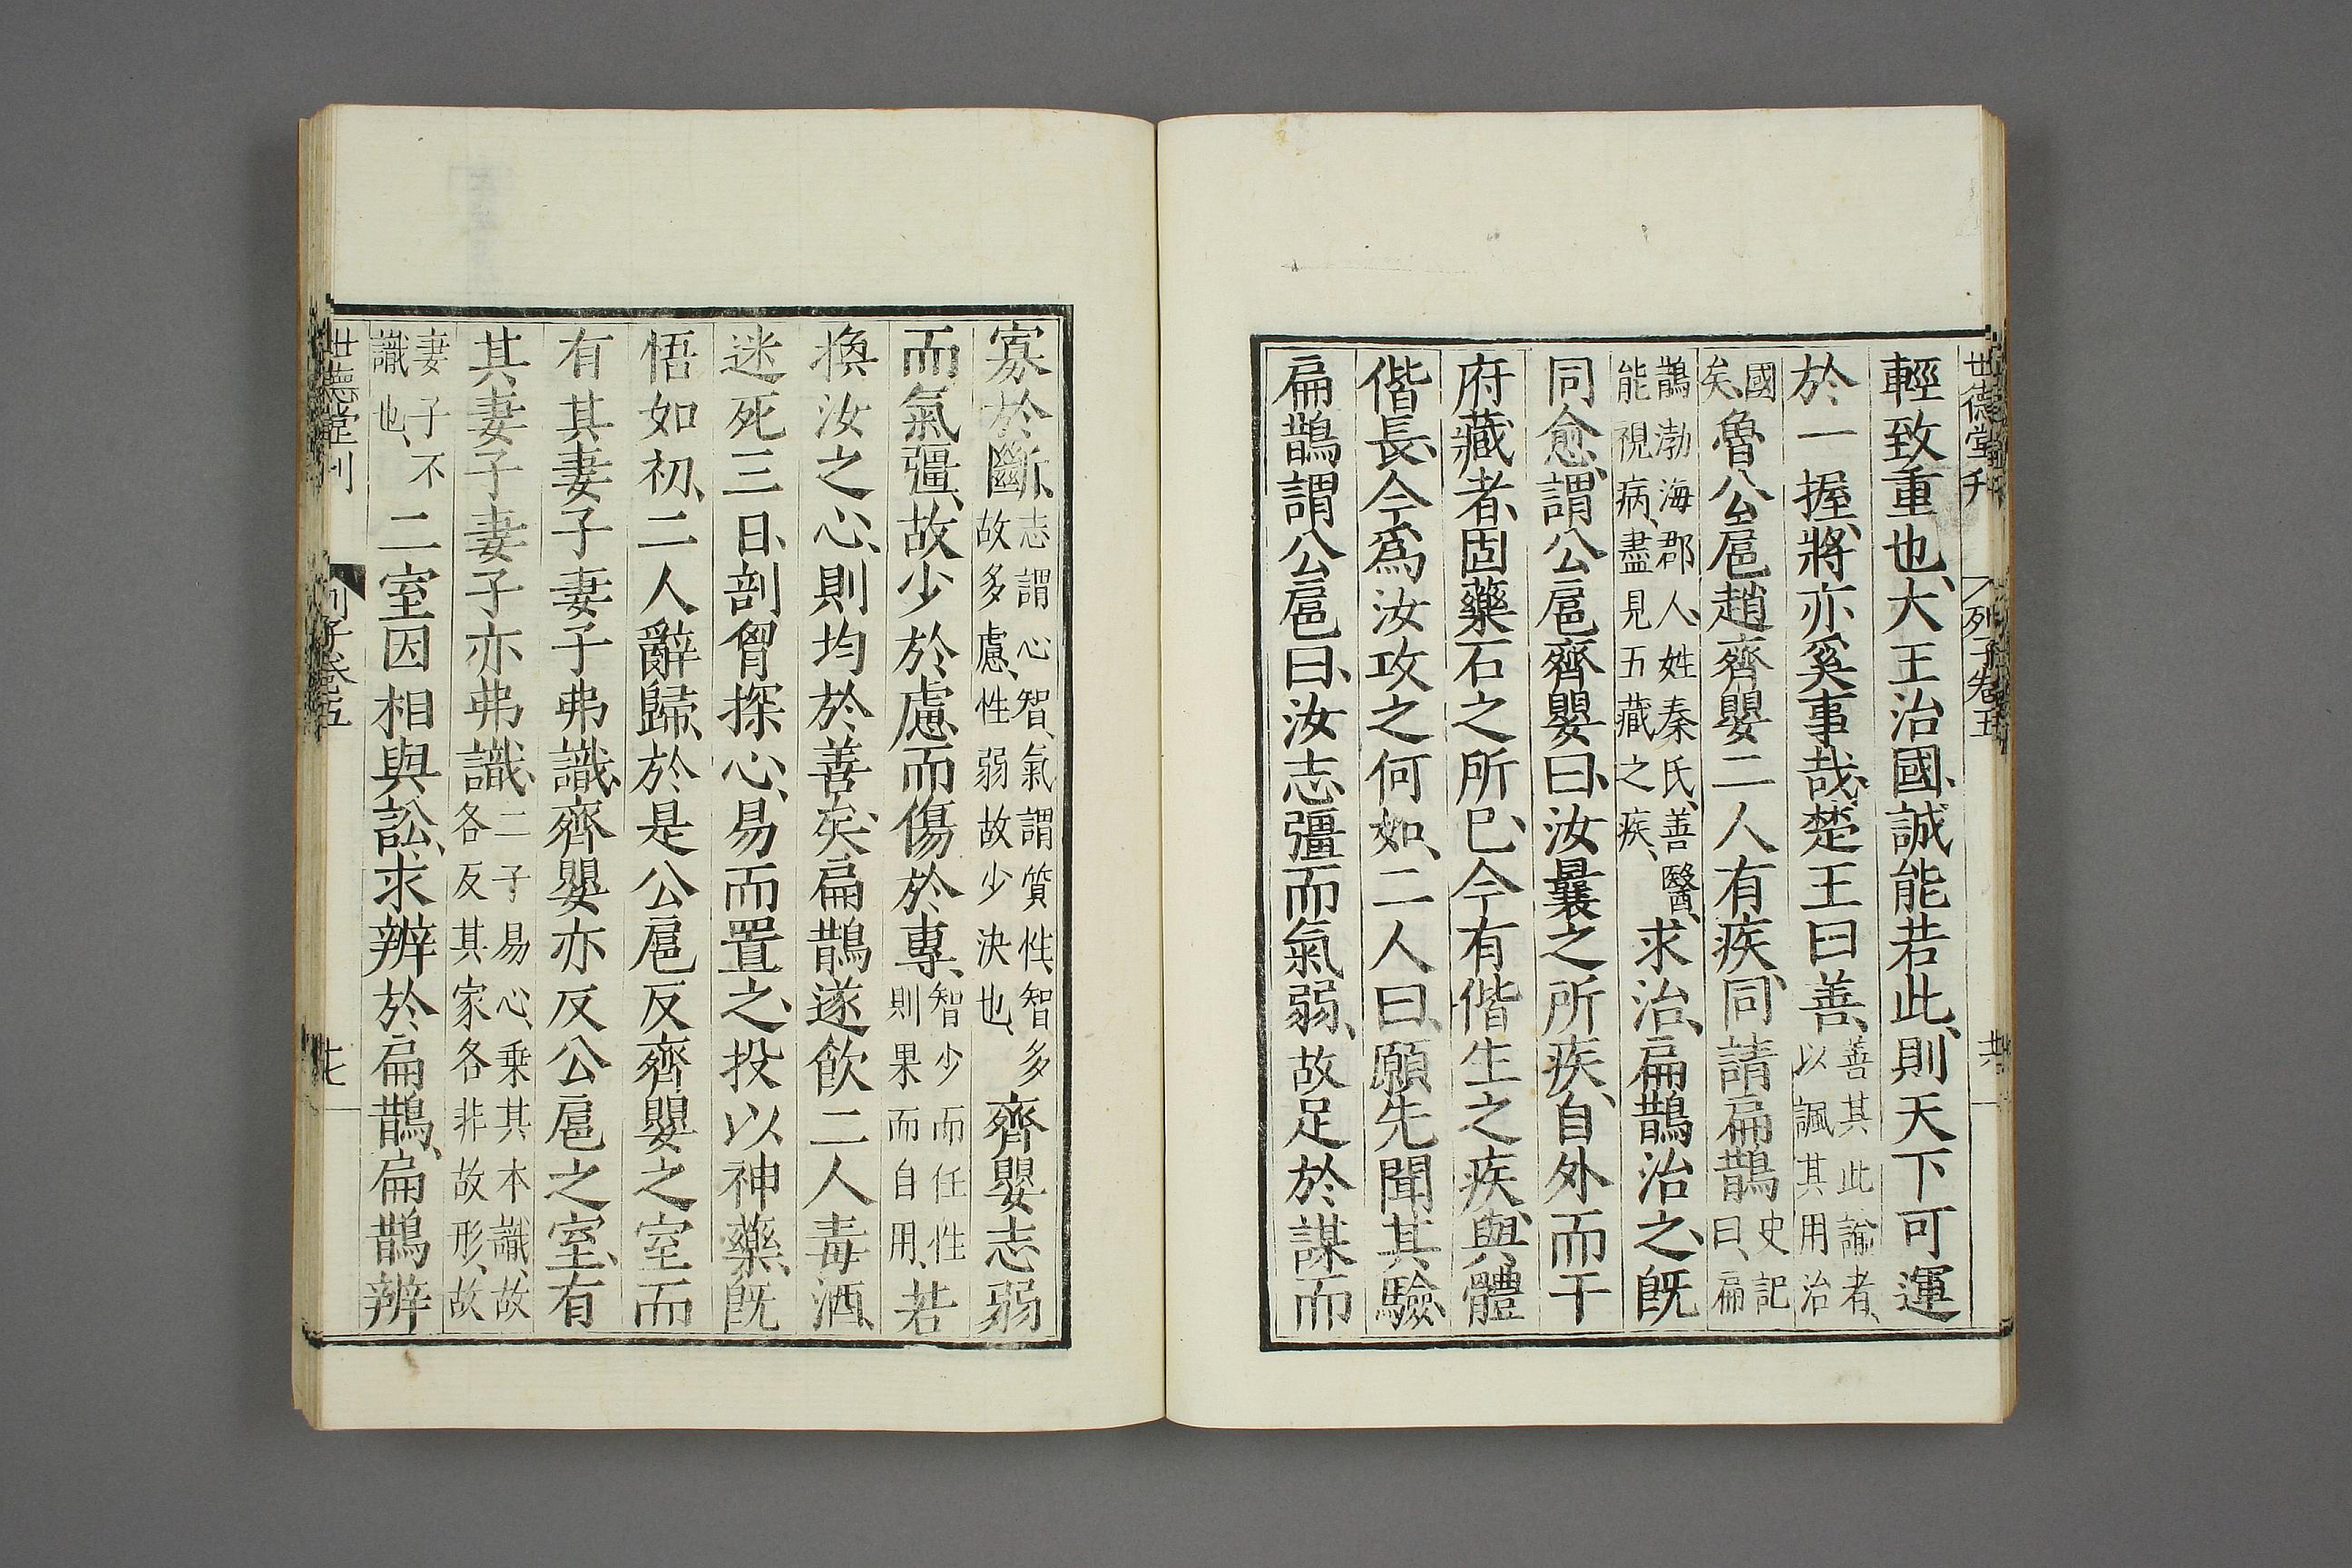 世德堂刊
列子卷五
輕致重也、大王治國、誠能若此、則天下可運
於一握、將亦奚事哉、楚王曰善、善其此諭者、以諷其用治
國矣、魯公扈趙齊嬰二人有疾、同請扁鵲史記曰、扁
鵲渤海郡人、姓秦氏、善醫、能視病、盡見五藏之疾、求治、扁鵲治之、旣
同愈、謂公扈齊嬰曰、汝曩之所疾、自外而干
府藏者、固藥石之所已、今有偕生之疾、與體
偕長、今爲汝攻之何如、二人曰、願先聞其驗、
扁鵲謂公扈曰、汝志彊而氣弱、故足於謀而
寡於斷、志謂心智、氣謂質性、智多故多慮、性弱故少決也、齊嬰志弱
而氣彊、故少於慮、而傷於專、智少而任性則果而自用、若
換汝之心、則均於善矣、扁鵲遂飮二人毒酒、
迷死三日、剖胷探心、易而置之、投以神藥、旣
悟如初、二人辭歸、於是公扈反齊嬰之室、而
有其妻子、妻子弗識、齊嬰亦反公扈之室、有
其妻子、妻子亦弗識、二子易心、乗其本識、故各反其家、各非故形、故
妻子不識也、二室因相與訟、求辨於扁鵲、扁鵲辨
世德堂刊
列子卷五